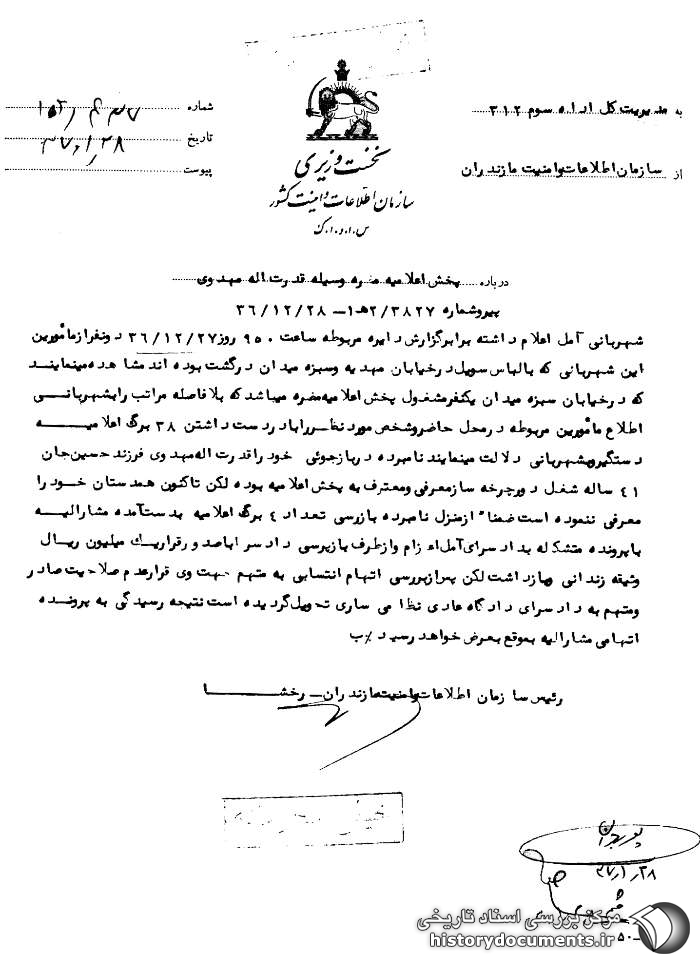 به مدیریت کل اداره سوم ۳۱۲
از سازمان اطلاعات وامنیت مازندران
شماره
تاریخ ۳۷,۱,۲۸
پیوست
نخست وزیری
سازمان اطلاعات وامنیت کشور
س.ا.و.ا.ک
درباره پخش اعلامیه مضره وسیله قدرت اله مهدوی
پیروشماره ۲/۳۸۲۷هـ۱ـ ۳۶/۱۲/۲۸
شهربانی آمل اعلام داشته برابرگزارش دایره مربوطه ساعت ۹۵۰ روز۳۶/۱۲/۲۷ دونفرازمأمورین
این شهربانی که بالباس سویل درخیابان مهدیه وسبزه میدان درگشت بوده اند مشاهده مینمایند
که درخیابان سبزه میدان یکنفرمشغول پخش اعلامیه مضره میباشد که بلافاصله مراتب رابشهربانی
اطلاع مأمورین مربوطه درمحل حاضروشخص مورد نظررابادردست داشتن ۳۸ برگ اعلامیه
دستگیروبشهربانی دلالت مینمایند نامبرده دربازجوئی خودراقدرت اله مهدوی فرزند حسین جان
۴۱ ساله شغل دوچرخه سازمعرفی ومعترف به پخش اعلامیه بوده لکن تاکنون همدستان خود را
معرفی ننموده است ضمناً ازمنزل نامبرده بازرسی تعداد ۴ برگ اعلامیه بدست آمده مشارالیه
باپرونده متشکله بدادسرای آمل اعزام وازطرف بازپرسی دادسراباصدورقراریک میلیون ریال
وثیقه زندانی وبازداشت لکن پس ازبررسی اتهام انتسابی به متهم جهت وی قرارعدم صلاحیت صادر
ومتهم به دادسرای دادگاه عادی نظامی ساری تحویل گردیده است نتیجه رسیدگی به پرونده
اتهامی مشارالیه بموقع بعرض خواهد رسید ٪ب
رئیس سازمان اطلاعات وامنیت مازندران ـ رخشا
۳۷,۱,۲۸
مرکز بررسی اسناد تاریخی
historydocuments.ir